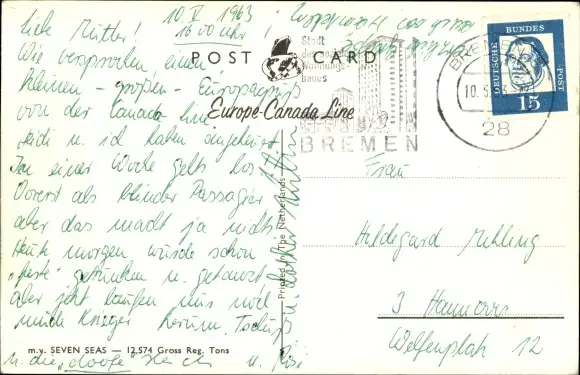 10. V 1963
16 00 Uhr!
Liebe Mutter!
Wie versprochen einen
kleinen - großen - Europagruß
von der Canada line
Heidi u. ich haben angeheuert
In einer Woche gehts los!
Vorerst als blinder Passagier
aber das macht ja nichts
Heute morgen wurde schon
"feste" getrunken u. getanzt
aber jetzt laufen uns
müde Krieger herum.
u. die "doofe"
POST CARD
Europe-Canada Line
Stadt
des sozialen
Wohnungs-
baues
BREMEN
BREMEN
10.5.63
28
DEUTSCHE BUNDESPOST
15
Frau
Hildegard Mehling
3 Hannover
Welfenplatz 12
Printed in the Netherlands
m.v. SEVEN SEAS — 12,574 Gross Reg. Tons